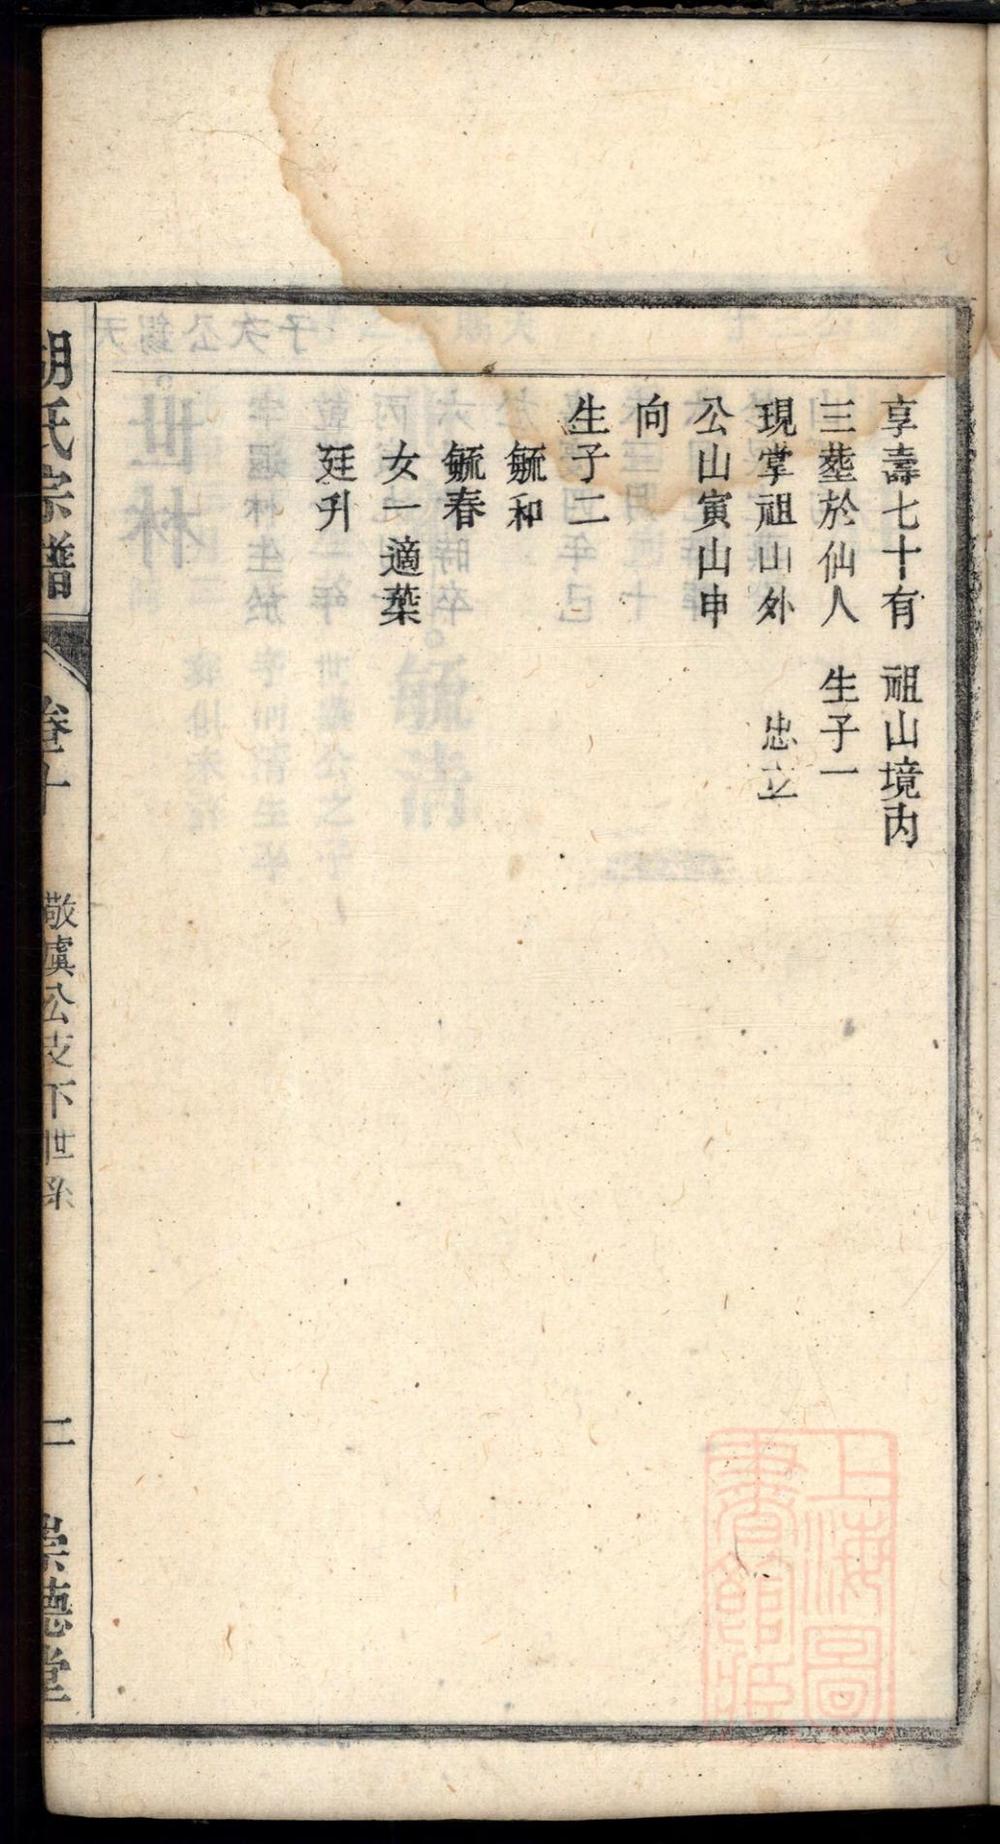 享壽七十有　祖山境內
三塟於仙人　生子一
現掌祖山外　忠立
公山寅山申
向
生子二
毓和
毓春
女一適葉
廷升
胡氏宗譜　卷十　敬虞公支下世系　二　崇德堂
上海圖
書館藏